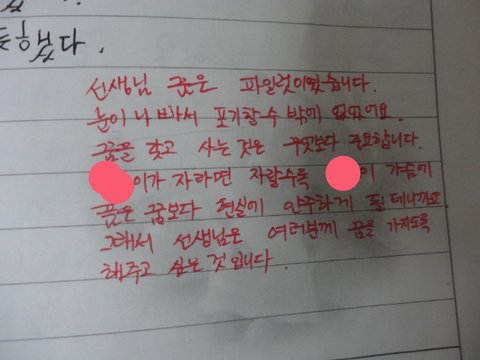 했다.
선생님 꿈은 파일럿이었습니다.
눈이 나빠서 포기할 수 밖에 없었어요.
꿈을 찾고 사는 것은 무엇보다 중요합니다.
이가 자라면 자랄수록 이 가슴에
품은 꿈보다 현실에 안주하게 될 테니까요
그래서 선생님은 여러분께 꿈을 가지도록
해주고 싶은 것 입니다.